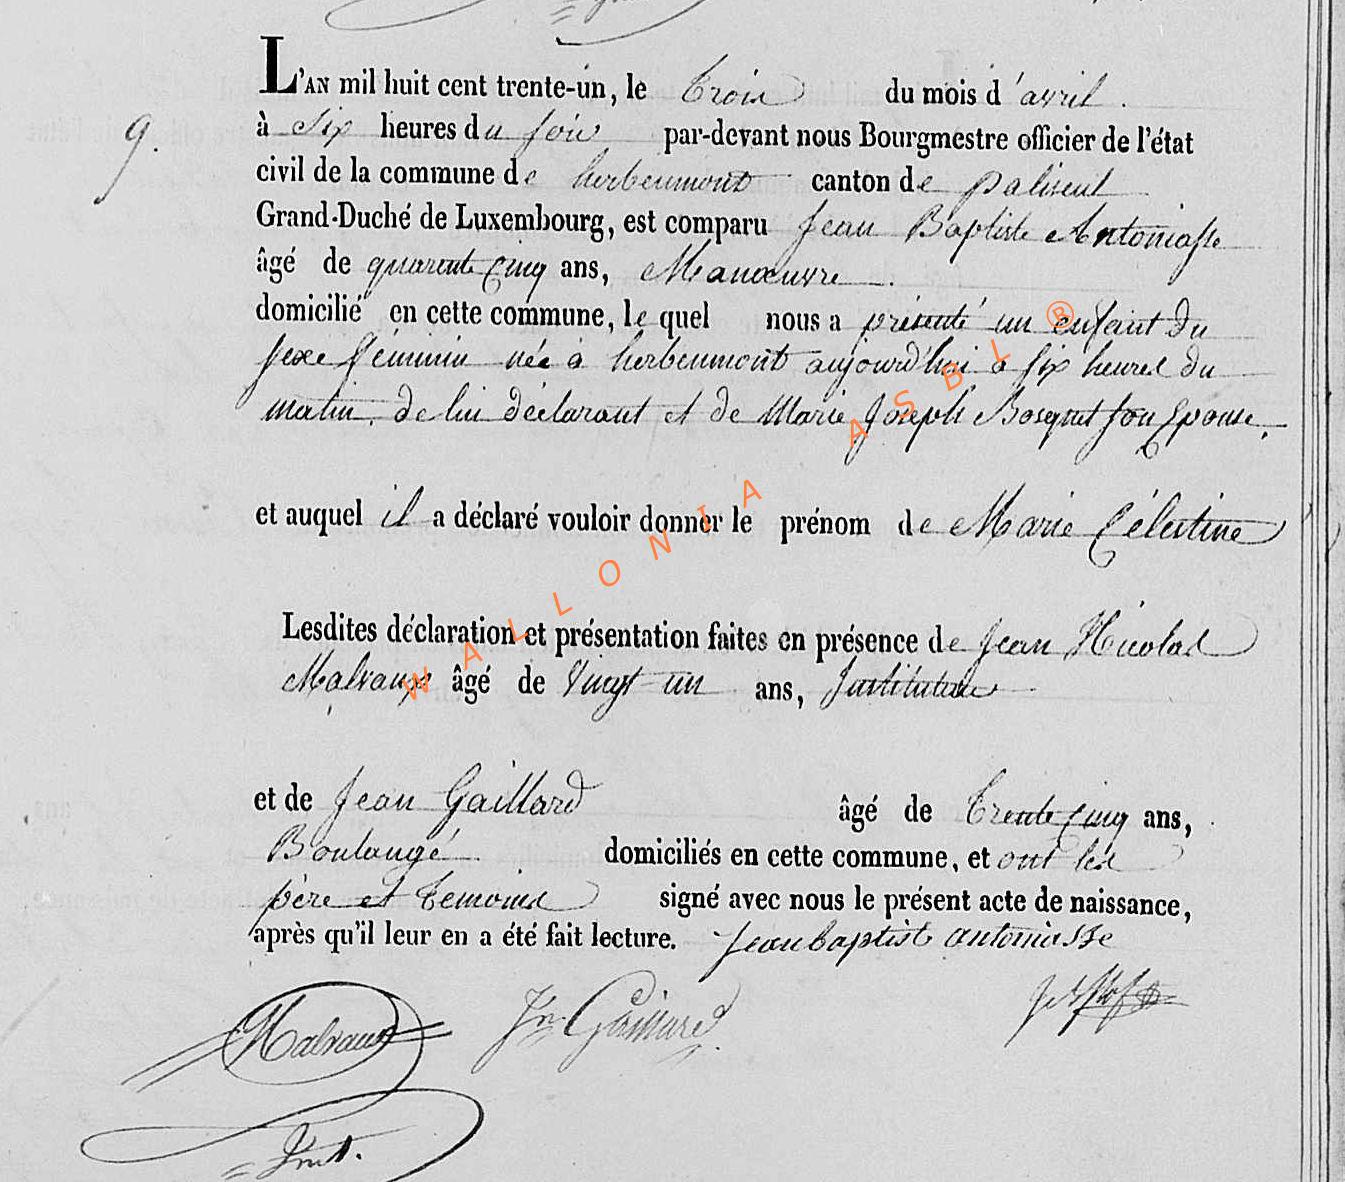 L'AN mil huit cent trente-un, le trois du mois d'avril.
9. à Six heures du soir par-devant nous Bourgmestre officier de l'état
civil de la commune de herbeumont canton de paliseul
Grand-Duché de Luxembourg, est comparu Jean Baptiste Antoniasse
âgé de quarente Cinq ans, Manœuvre.
domicilié en cette commune, le quel nous a présenté un enfant du
sexe féminin née à herbeumont aujourd'hui a six heures du
matin, de lui déclarant et de Marie Joseph Bosquet son Epouse,
et auquel il a déclaré vouloir donner le prénom de Marie Célestine
Lesdites déclaration et présentation faites en présence de Jean Nicolas
Malvaux âgé de Vingt un ans, Instituteur
et de Jean Gaillard âgé de trente Cinq ans,
Boulangé domiciliés en cette commune, et ont les
père et temoins signé avec nous le présent acte de naissance,
après qu'il leur en a été fait lecture. Jean baptiste antoniasse
Malvaux Jn Gaillard
Inst.
WALLONIA ASBL ®